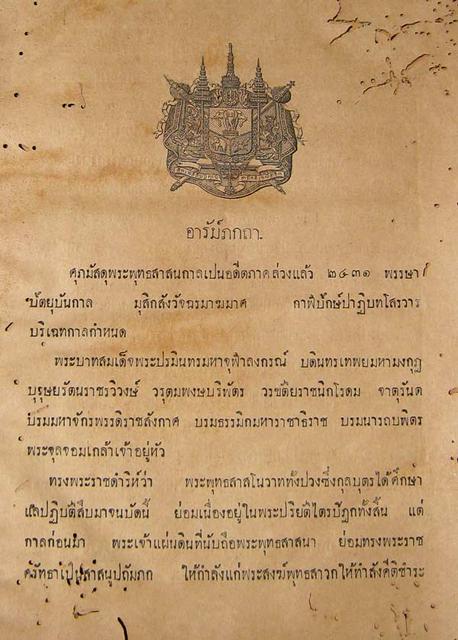 อารัมภกถา.
ศุภมัสดุพระพุทธสาสนกาลเปนอดีตภาคล่วงแล้ว ๒๔๓๑ พรรษา
ปัตยุบันกาล มุสิกสังวัจฉรมาฆมาศ กาฬปักษ์ปาฏิบทโสรวาร
บริเฉทกาลกำหนด
พระบาทสมเด็จพระปรมินทรมหาจุฬาลงกรณ์ บดินทรเทพยมหามงกุฎ
บุรุษยรัตนราชรวิวงษ์ วรุตมพงษบริพัตร วรขัติยราชนิกโรดม จาตุรันต
บรมมหาจักรพรรดิราชสังกาศ บรมธรรมิกมหาราชาธิราช บรมนารถบพิตร
พระจุลจอมเกล้าเจ้าอยู่หัว
ทรงพระราชดำริห์ว่า พระพุทธสาสโนวาททั้งปวงซึ่งกุลบุตรได้ศึกษา
แลปฏิบัติสืบมาจนบัดนี้ ย่อมเนื่องอยู่ในพระปริยัติไตรปิฎกทั้งสิ้น แต่
กาลก่อนมา พระเจ้าแผ่นดินที่นับถือพระพุทธสาสนา ย่อมทรงพระราช
ศรัทธาเปนสาสนูปถัมภก ให้กำลังแก่พระสงฆ์พุทธสาวกให้ทำสังคีติชำระ